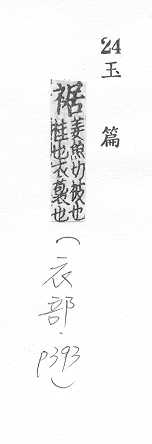 24 玉篇
裾
姜魚切裓也
袿也衣袌也
(衣部. p393)